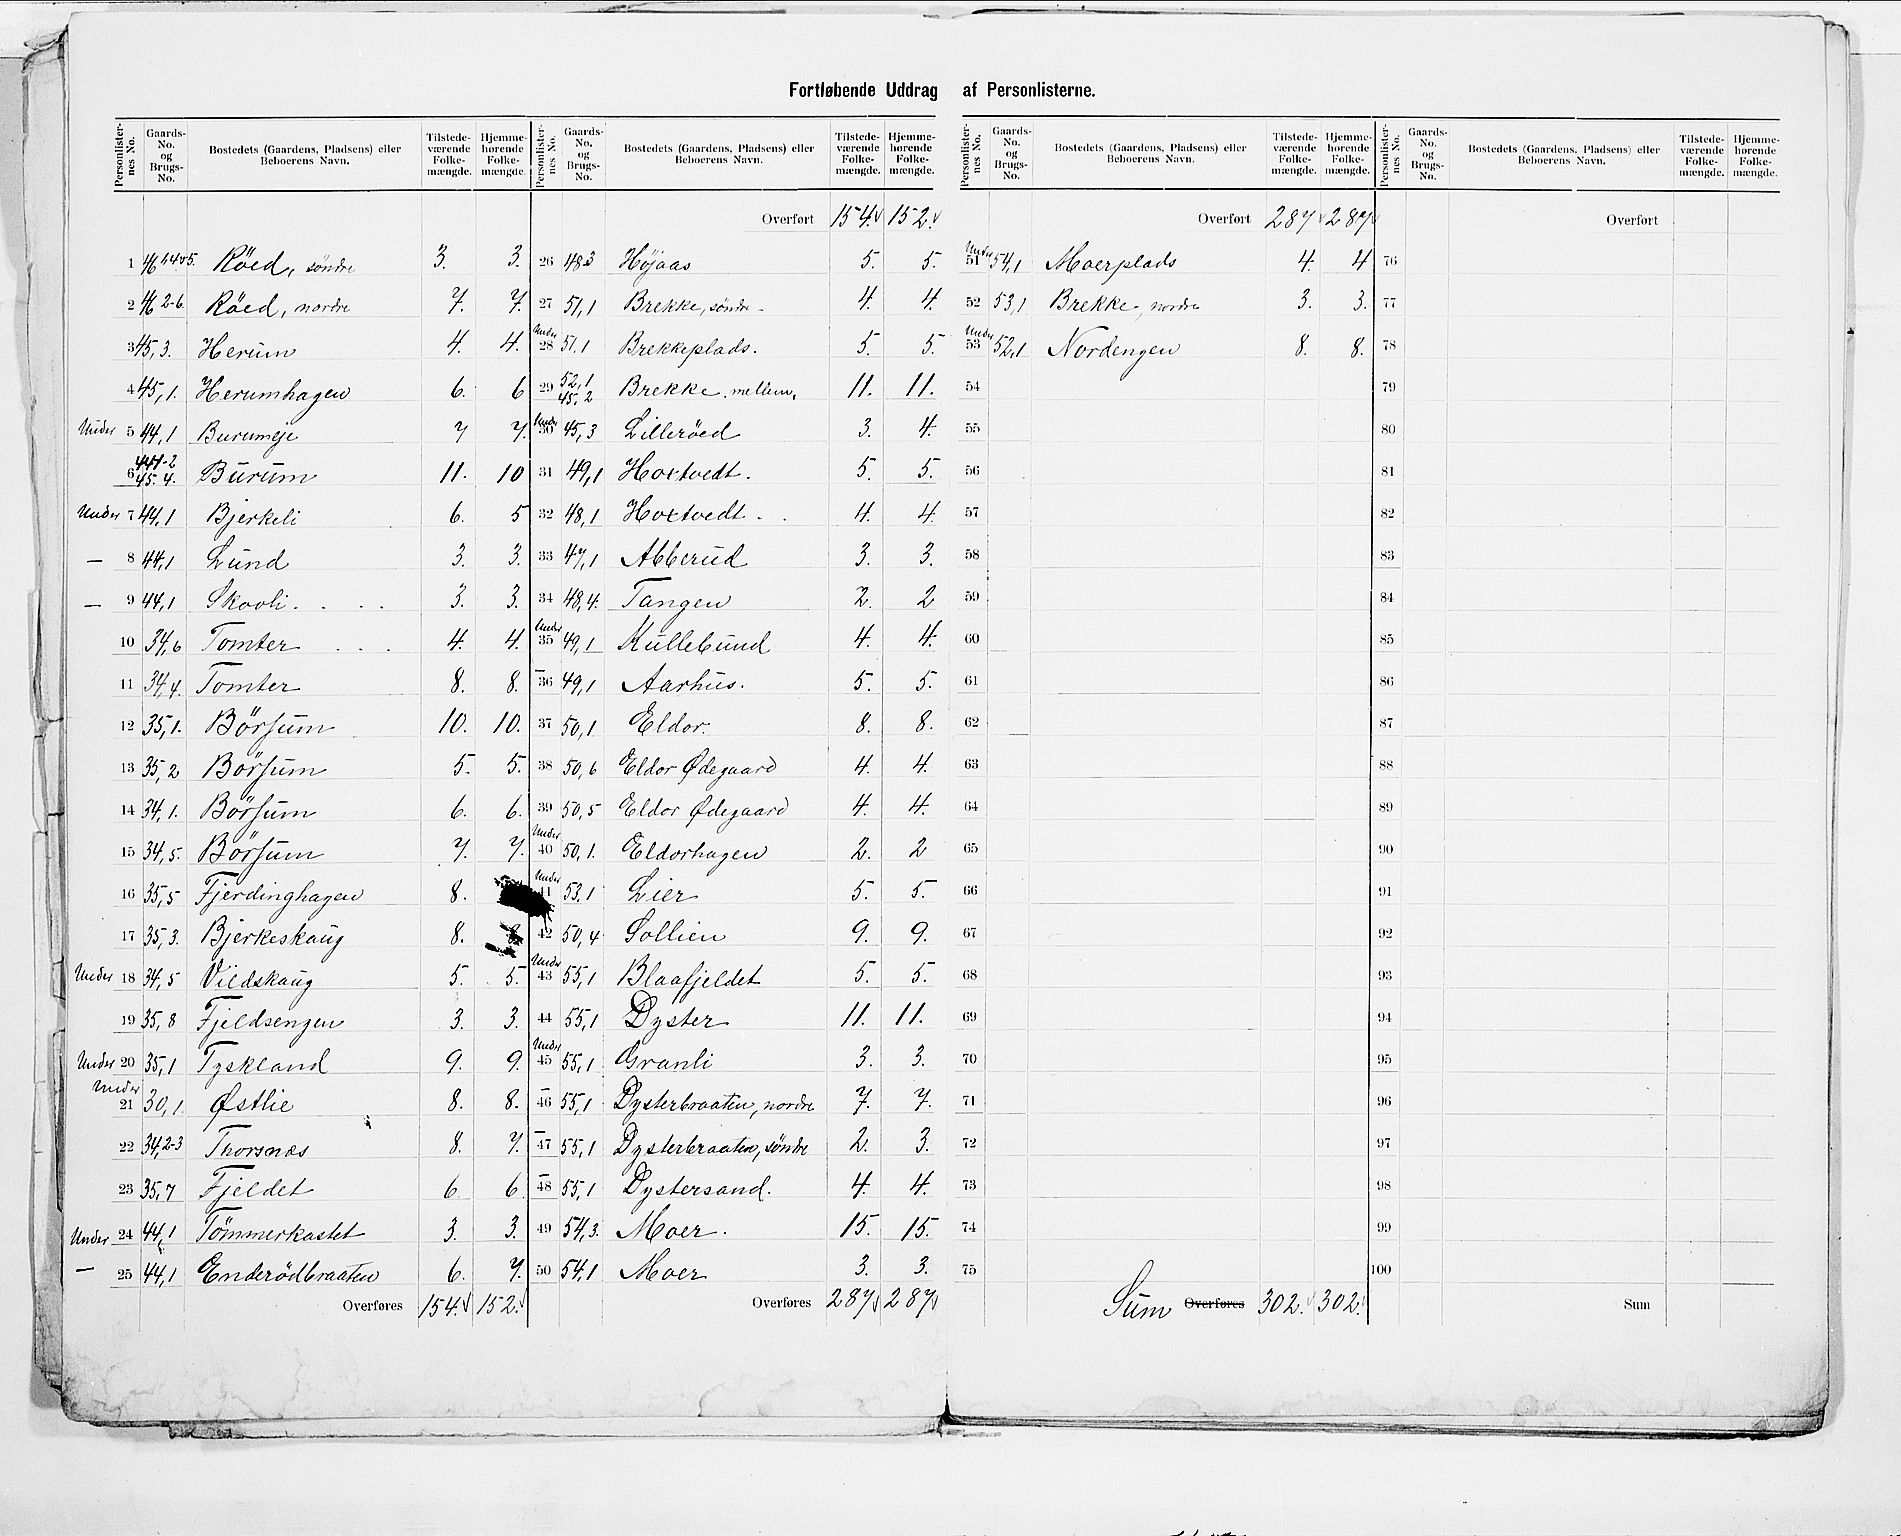 Fortløbende Uddrag af Personlisterne.
Personlister-nes No. Gaards-No. og Brugs-No. Bostedets (Gaardens, Pladsens) eller Beboerens Navn. Tilstede-værende Folke-mængde. Hjemme-hørende Folke-mængde.
1 46 1.4.5. Röed, söndre 3. 3.
2 46 2-6 Röed, nordre 7. 7.
3 45,3. Herum 4. 4.
4 45,1. Herumhagen 6. 6
Under 5 44,1 Burumeje 7 7.
6 44 1-2 45.4. Burum 11. 10
Under 7 44,1 Bjerkeli 6. 5
— 8 44,1 Lund 3. 3.
— 9 44,1 Skovli. 3. 3.
10 34,6 Tomter 4. 4.
11 34,4. Tomter 8. 8.
12 35,1. Börsum 10. 10.
13 35,2 Börsum 5. 5.
14 34,1. Börsum 6. 6.
15 34,5. Börsum 7. 7.
16 35,5 Fjerdinghagen 8.
17 35,3. Bjerkeskaug 8. 8
Under 18 34,5 Vildskaug 5. 5.
19 35,8 Fjeldsengen 3. 3.
Under 20 35,1 Tyskland 9. 9.
Under 21 30,1. Østlie 8. 8.
22 34,2-3 Thorsnæs 8. 7.
23 35,7 Fjeldet 6 6
Under 24 44,1 Tömmerkastet 3. 3.
— 25 44,1 Enderödbraaten 6. 7.
Overføres 154. 152.
Personlister-nes No. Gaards-No. og Brugs-No. Bostedets (Gaardens, Pladsens) eller Beboerens Navn. Tilstede-værende Folke-mængde. Hjemme-hørende Folke-mængde.
Overført 154. 152.
26 48.3 Höjaas 5. 5.
27 51,1 Brekke, söndre. 4. 4.
Under 28 51.1 Brekkeplads. 5. 5.
29 52,1 45.2 Brekke, mellem. 11. 11.
Under 30 45,3 Lilleröed 3. 4.
31 49,1 Hoxtvedt. 5. 5.
32 48,1 Hoxtvedt. 4. 4.
33 47,1 Abberud 3. 3.
34 48,4. Tangen 2. 2
Under 35 49,1 Kullebund 4. 4.
— 36 49,1 Aarhus. 5. 5.
37 50,1 Eldor. 8. 8.
38 50,6 Eldor Ødegaard 4. 4.
39 50,5 Eldor Ødegaard 4. 4.
Under 40 50,1. Eldorhagen 2. 2
Under 41 53.1 Lier 5. 5.
42 50,4 Sollien 9. 9.
Under 43 55,1 Blaafjeldet 5. 5.
44 55,1 Dyster 11. 11.
Under 45 55,1 Granli 3. 3.
— 46 55,1 Dysterbraaten, nordre 7. 7.
— 47 55,1 Dysterbraaten, söndre 2. 3.
— 48 55,1 Dystersand. 4. 4.
49 54,3. Moer. 15. 15.
50 54,1 Moer 3. 3.
Overføres 287 287
Personlister-nes No. Gaards-No. og Brugs-No. Bostedets (Gaardens, Pladsens) eller Beboerens Navn. Tilstede-værende Folke-mængde. Hjemme-hørende Folke-mængde.
Overført 287 287
Under 51 54,1 Moerplads 4. 4
52 53,1 Brekke, nordre 3. 3.
Under 53 52,1 Nordengen 8. 8.
54
55
56
57
58
59
60
61
62
63
64
65
66
67
68
69
70
71
72
73
74
75
Sum Overføres 302. 302.
Personlister-nes No. Gaards-No. og Brugs-No. Bostedets (Gaardens, Pladsens) eller Beboerens Navn. Tilstede-værende Folke-mængde. Hjemme-hørende Folke-mængde.
Overført
76
77
78
79
80
81
82
83
84
85
86
87
88
89
90
91
92
93
94
95
96
97
98
99
100
Sum